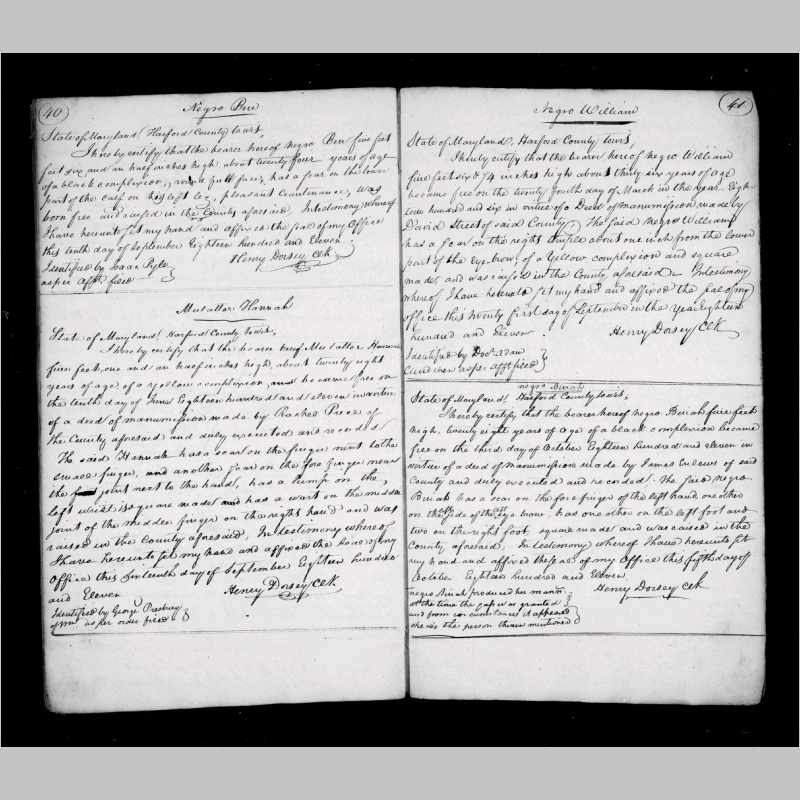 40
Negro Ben
State of Maryland! Harford County Court,
I hereby certify that the bearer hereof negro Ben five feet
feet six and an half inches high about twenty four years of age
of a black complexion, round full face, has a scar on the lower
part of the calf on his left leg, pleasant countenance, was
born free and raised in the County aforesaid. In testimony whereof
I have hereunto set my hand and affixed the seal of my Office
this tenth day of September Eighteen hundred and Eleven.
Identified by Isaac Pyle
as per Affdt filed
Henry Dorsey Clk
Mulatto Hannah
State of Maryland! Harford County Court,
I hereby certify that the bearer hereof Mulatto Hannah
five feet, one and an half inches high, about twenty eight
years of age, of a yellow complexion, and became free on
the tenth day of June Eighteen hundred and eleven in virtue
of a deed of manumission made by Rachel Price of
the County aforesaid and duly executed and recorded
The said Hannah has a scar on the finger next to the
finger, and another scar on the fore finger near
the joint next to the hand, has a lump on the
left wrist is square made and has a wart on the middle
joint of the middle finger on the right hand and was
raised in the County aforesaid, In testimony whereof
I have hereunto set my hand and affixed the seal of my
Office this sixteenth day of September Eighteen hundred
and Eleven
Henry Dorsey Clk
Identified by George Presbury
of Wm as per order filed
41
Negro William
State of Maryland, Harford County Court,
I hereby certify that the bearer hereof negro William
five feet six & 3/4 inches high about thirty six years of age
became free on the twenty fourth day of March in the year Eigh-
teen hundred and six in virtue of a Deed of Manumission made by
David Street of said County. The said Negro William
has a scar on the right temple about one inch from the lower
part of the eye-brow, of a Yellow complexion and square
made and was raised in the County aforesaid. In testimony
whereof I have hereunto set my hand and affixed the seal of my
office this twenty first day of September in the year Eighteen
hundred and Eleven.
Henry Dorsey Clk
Identified by Doct Adam
as per affdt filed
negro Beriah
State of Maryland! Harford County Court;
I hereby certify that the bearer hereof negro Beriah five feet
high, twenty eight years of age of a black complexion became
free on the third day of October Eighteen hundred and eleven in
virtue of a deed of Manumission made by James of said
County and duly executed and recorded. The said negro
Beriah has a scar on the fore finger of the left hand, one other
on the side of the left eye brow, has one other on the left foot and
two on the right foot, square made and was raised in the
County aforesaid, In testimony whereof I have hereunto set
my hand and affixed the seal of my Office this fifth day of
October Eighteen hundred and Eleven
Henry Dorsey Clk
negro Beriah produced her manum:
at the time the pass was granted
and from circumstances it appeared
she was the person therein mentioned